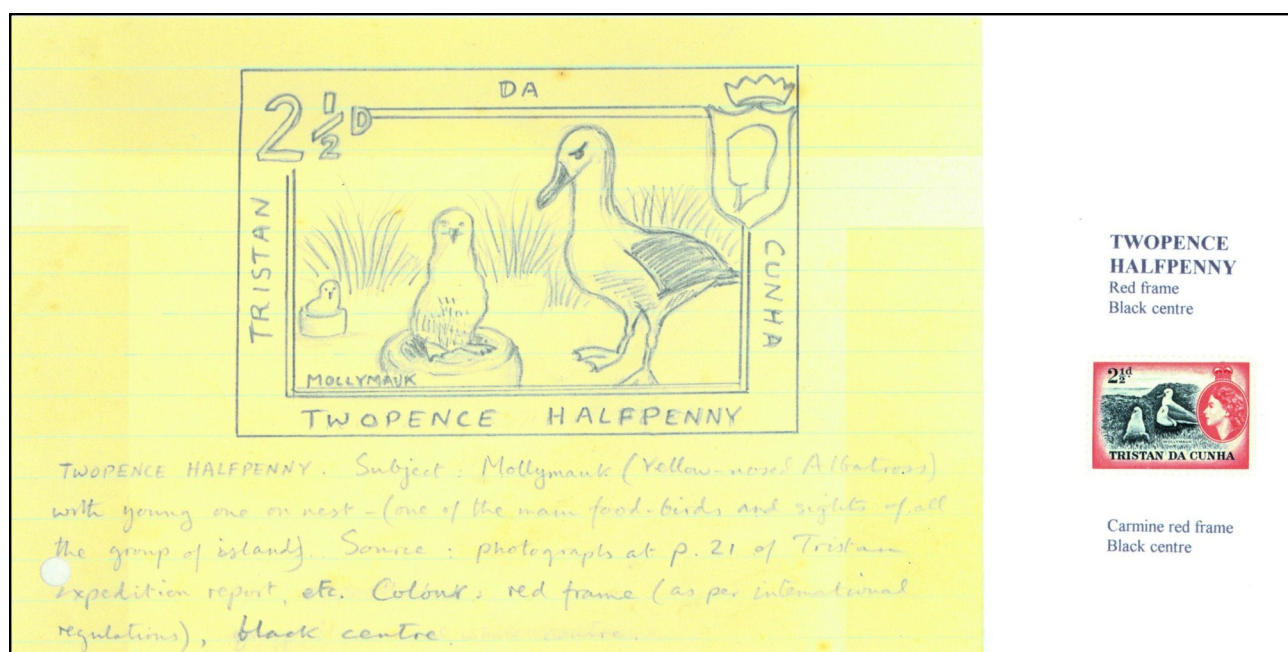 DA
2 1/2 D
TRISTAN
CUNHA
MOLLYMAUK
TWOPENCE HALFPENNY
TWOPENCE HALFPENNY. Subject: Mollymauk (Yellow-nosed Albatross)
with young one on nest - (one of the main food-birds and sights of all
the group of islands). Source: photographs at p. 21 of Tristan
expedition report, etc. Colour: red frame (as per international
regulations), black centre.
TWOPENCE
HALFPENNY
Red frame
Black centre
2½d.
MOLLYMAUK
TRISTAN DA CUNHA
Carmine red frame
Black centre